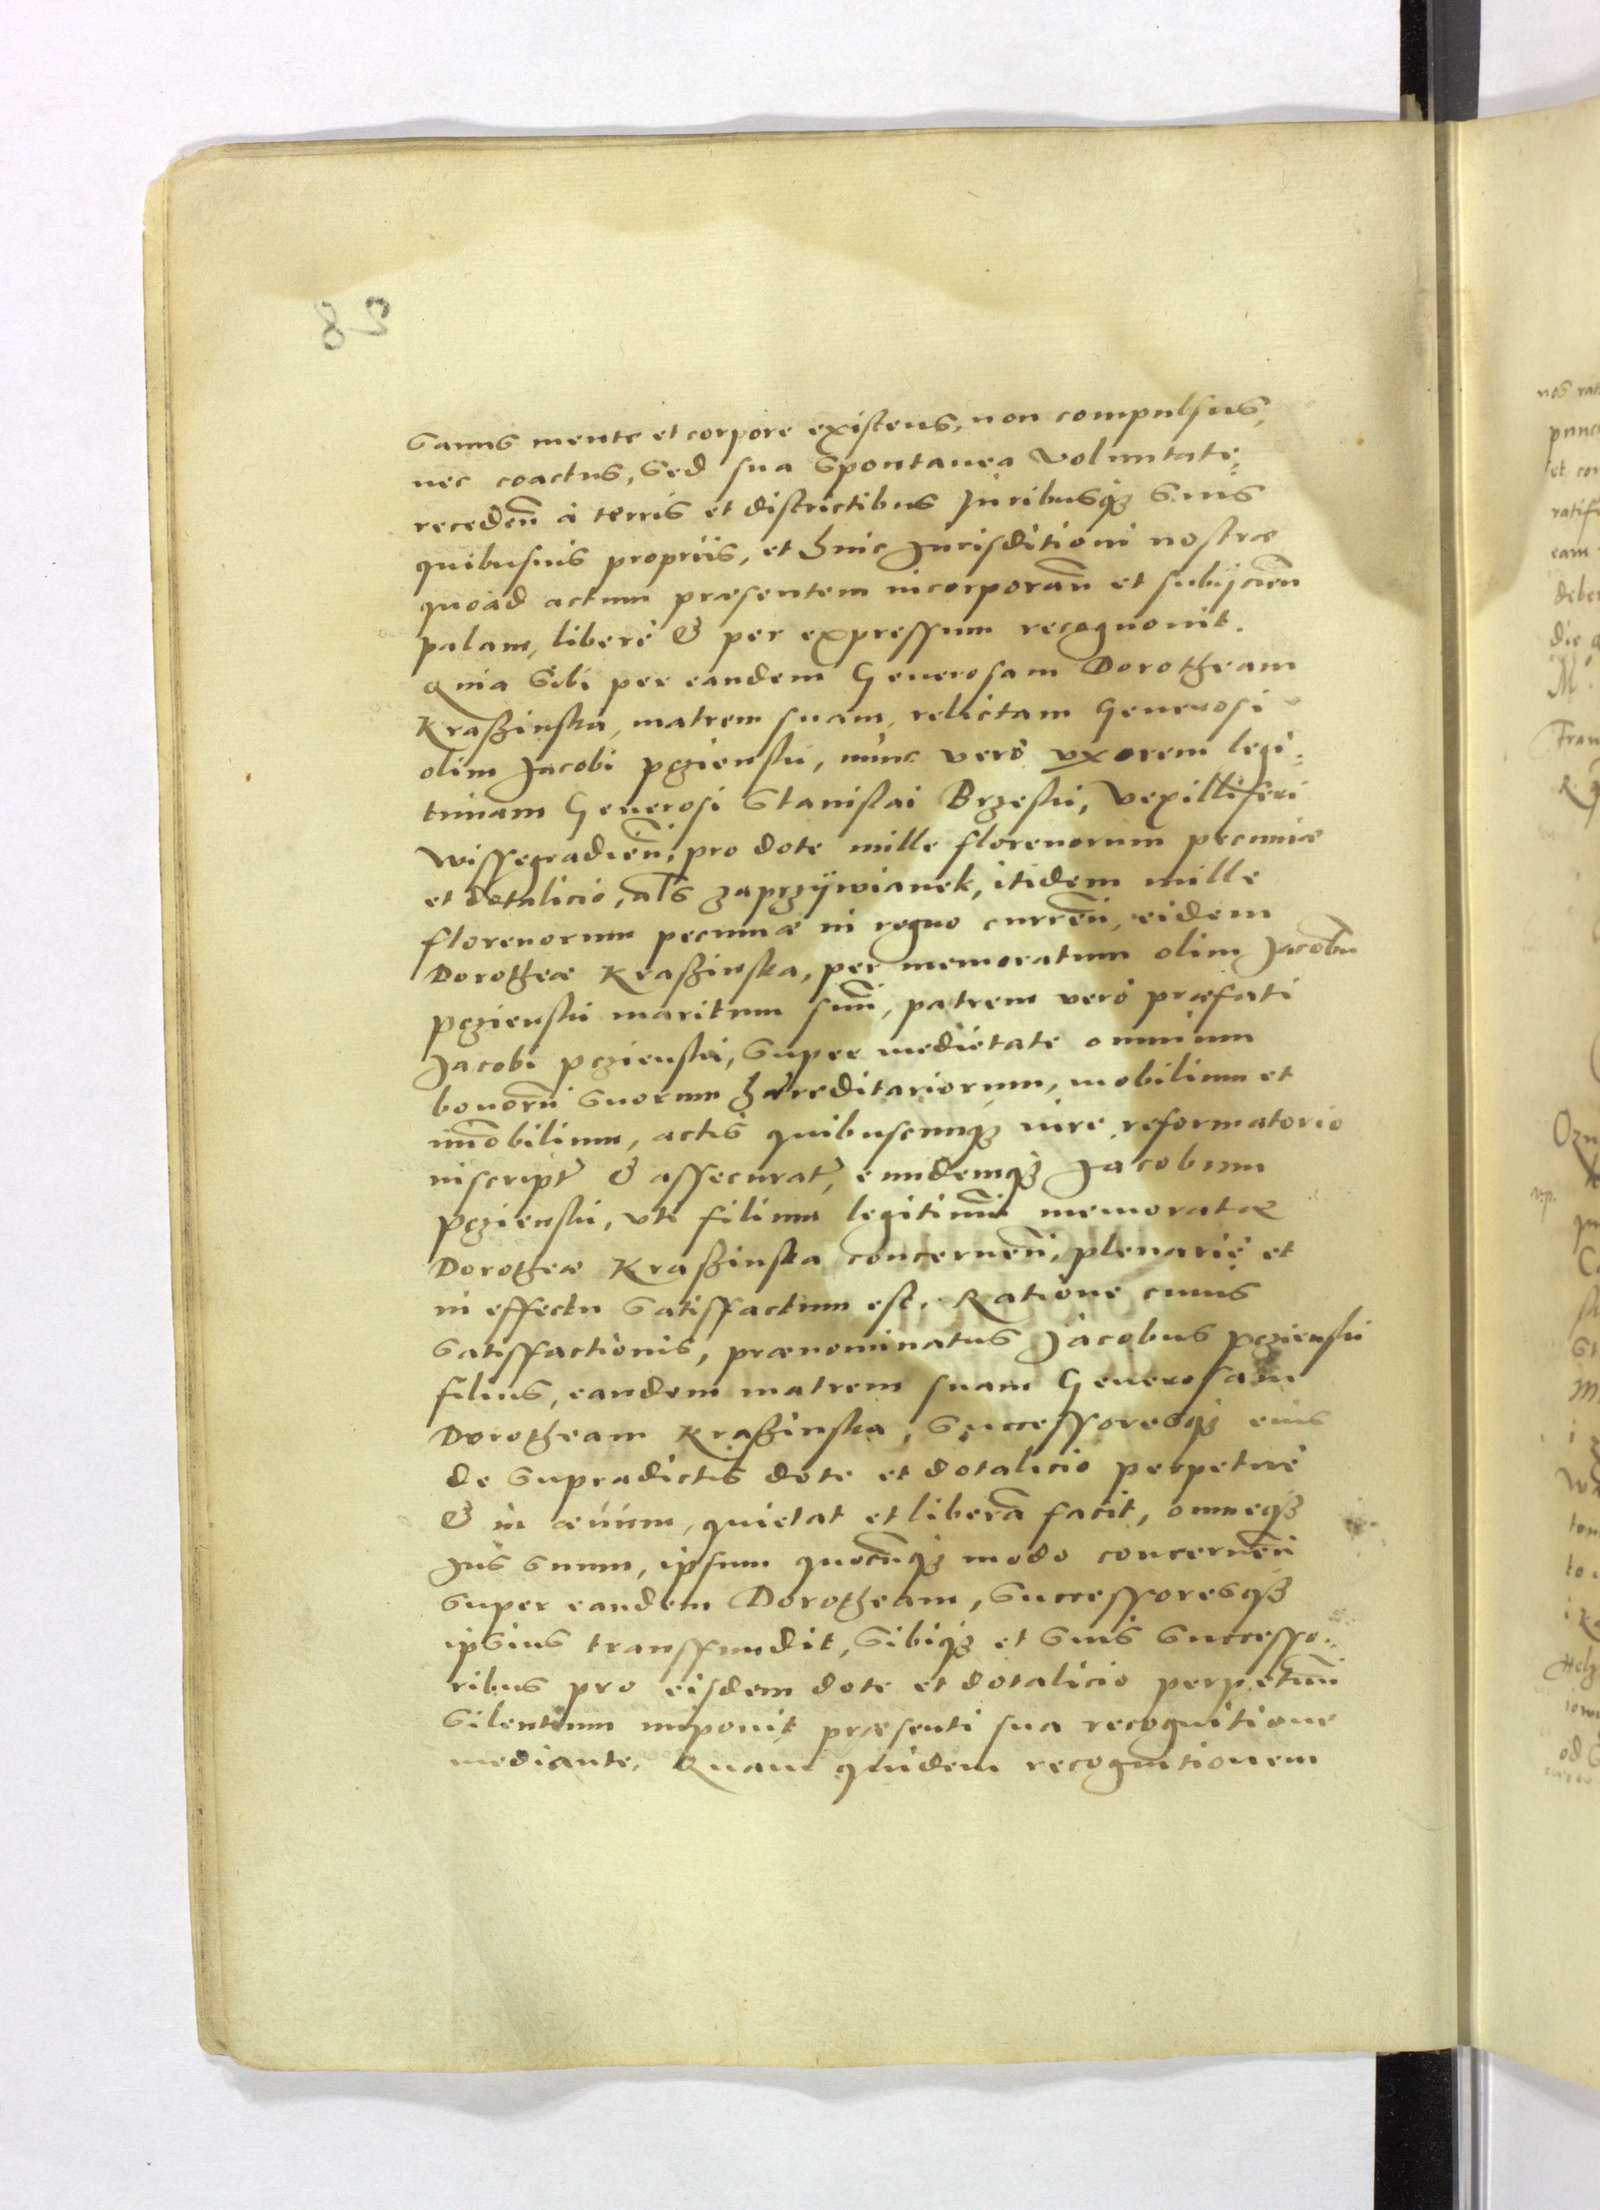 sanus mente et corpore existens, non compulsus,
nec coactus, sed sua spontanea voluntate,
recedeñ à terris et districtibus Juribusq́ʒ suis
quibusuis proprÿs, et huic Jurisditioni nostræ
quoad actum præsentem incorporañ et subÿcieñ
palam, liberè & per expressum recognouit.
Quia sibi per eandem Generosam Dorotheam
Kraßinska, matrem suam, relictam Generosi
olim Jacobi pczienski, nunc verò vxorem legi-
timam Generosi Stanislai Brzeski, Vexilliferi
Wissegradieñ, pro dote mille florenorum pecuniæ
et dotalicio, als zaprzÿwianek, itidem mille
florenorum pecuniæ in regno curreñ, eidem
Dorotheæ Kraßinska, per memoratum olim Jacobū
pczienski maritum suū, patrem verò præfati
Jacobi pczienski, super medietate omnium
bonorū suorum hæreditariorum, mobilium et
im̄obilium, actis quibuscunq́ʒ iure reformatorio
inscript̃ & assecurat̃, eundemq́ʒ Jacobum
pczienski, vti filium legitimū memoratæ
Dorotheæ Kraßinska concerneñ, plenariè et
in effectu satisfactum est. Ratione cuius
satisfactionis, prænominatus Jacobus pczienski
filius, eandem matrem suam Generosam
Dorotheam Kraßinska, successoresq́ʒ eius
de supradictis dote et dotalicio perpetuè
& in æuum, quietat et liberā facit, omneq́ʒ
Jus suum, ipsum quocūq́ʒ modo concerneñ
super eandem Dorotheam, successoresq́ʒ
ipsius transfundit, sibiq́ʒ et suis successo-
ribus pro eisdem dote et dotalicio perpetuū
silentium imponit præsenti sua recognitione
mediante. Quam quidem recognitionem